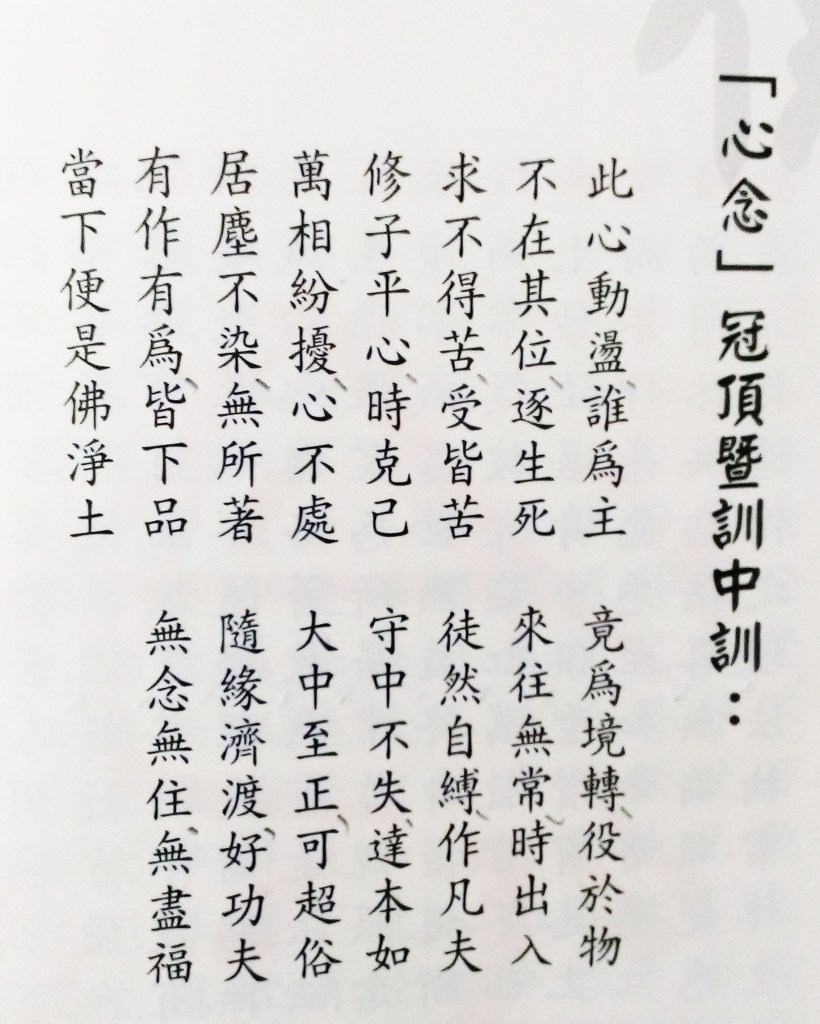 「心念」冠頂暨訓中訓：
此心動盪誰為主　竟為境轉役於物
不在其位逐生死　來往無常時出入
求不得苦受皆苦　徒然自縛作凡夫
修子平心時克己　守中不失達本如
萬相紛擾心不處　大中至正可超俗
居塵不染無所著　隨緣濟渡好功夫
有作有為皆下品　無念無住無盡福
當下便是佛淨土